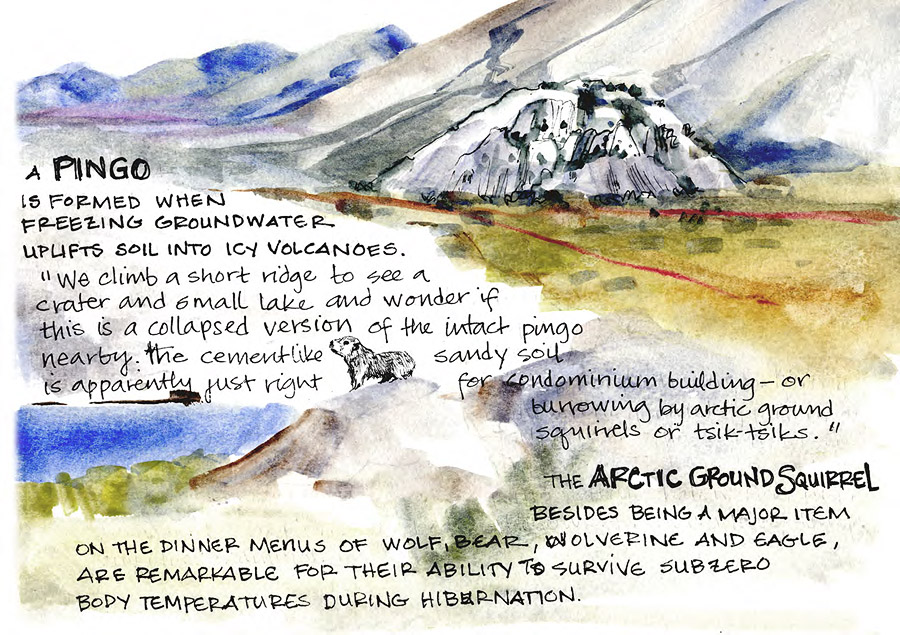 A PINGO
IS FORMED WHEN
FREEZING GROUNDWATER
UPLIFTS SOIL INTO ICY VOLCANOES.
"We climb a short ridge to see a
crater and small lake and wonder if
this is a collapsed version of the intact pingo
nearby. The cementlike sandy soil
is apparently just right for condominium building - or
burrowing by arctic ground
squirrels or tsik-tsiks."
THE ARCTIC GROUND SQUIRREL
BESIDES BEING A MAJOR ITEM
ON THE DINNER MENUS OF WOLF, BEAR, WOLVERINE AND EAGLE,
ARE REMARKABLE FOR THEIR ABILITY TO SURVIVE SUBZERO
BODY TEMPERATURES DURING HIBERNATION.